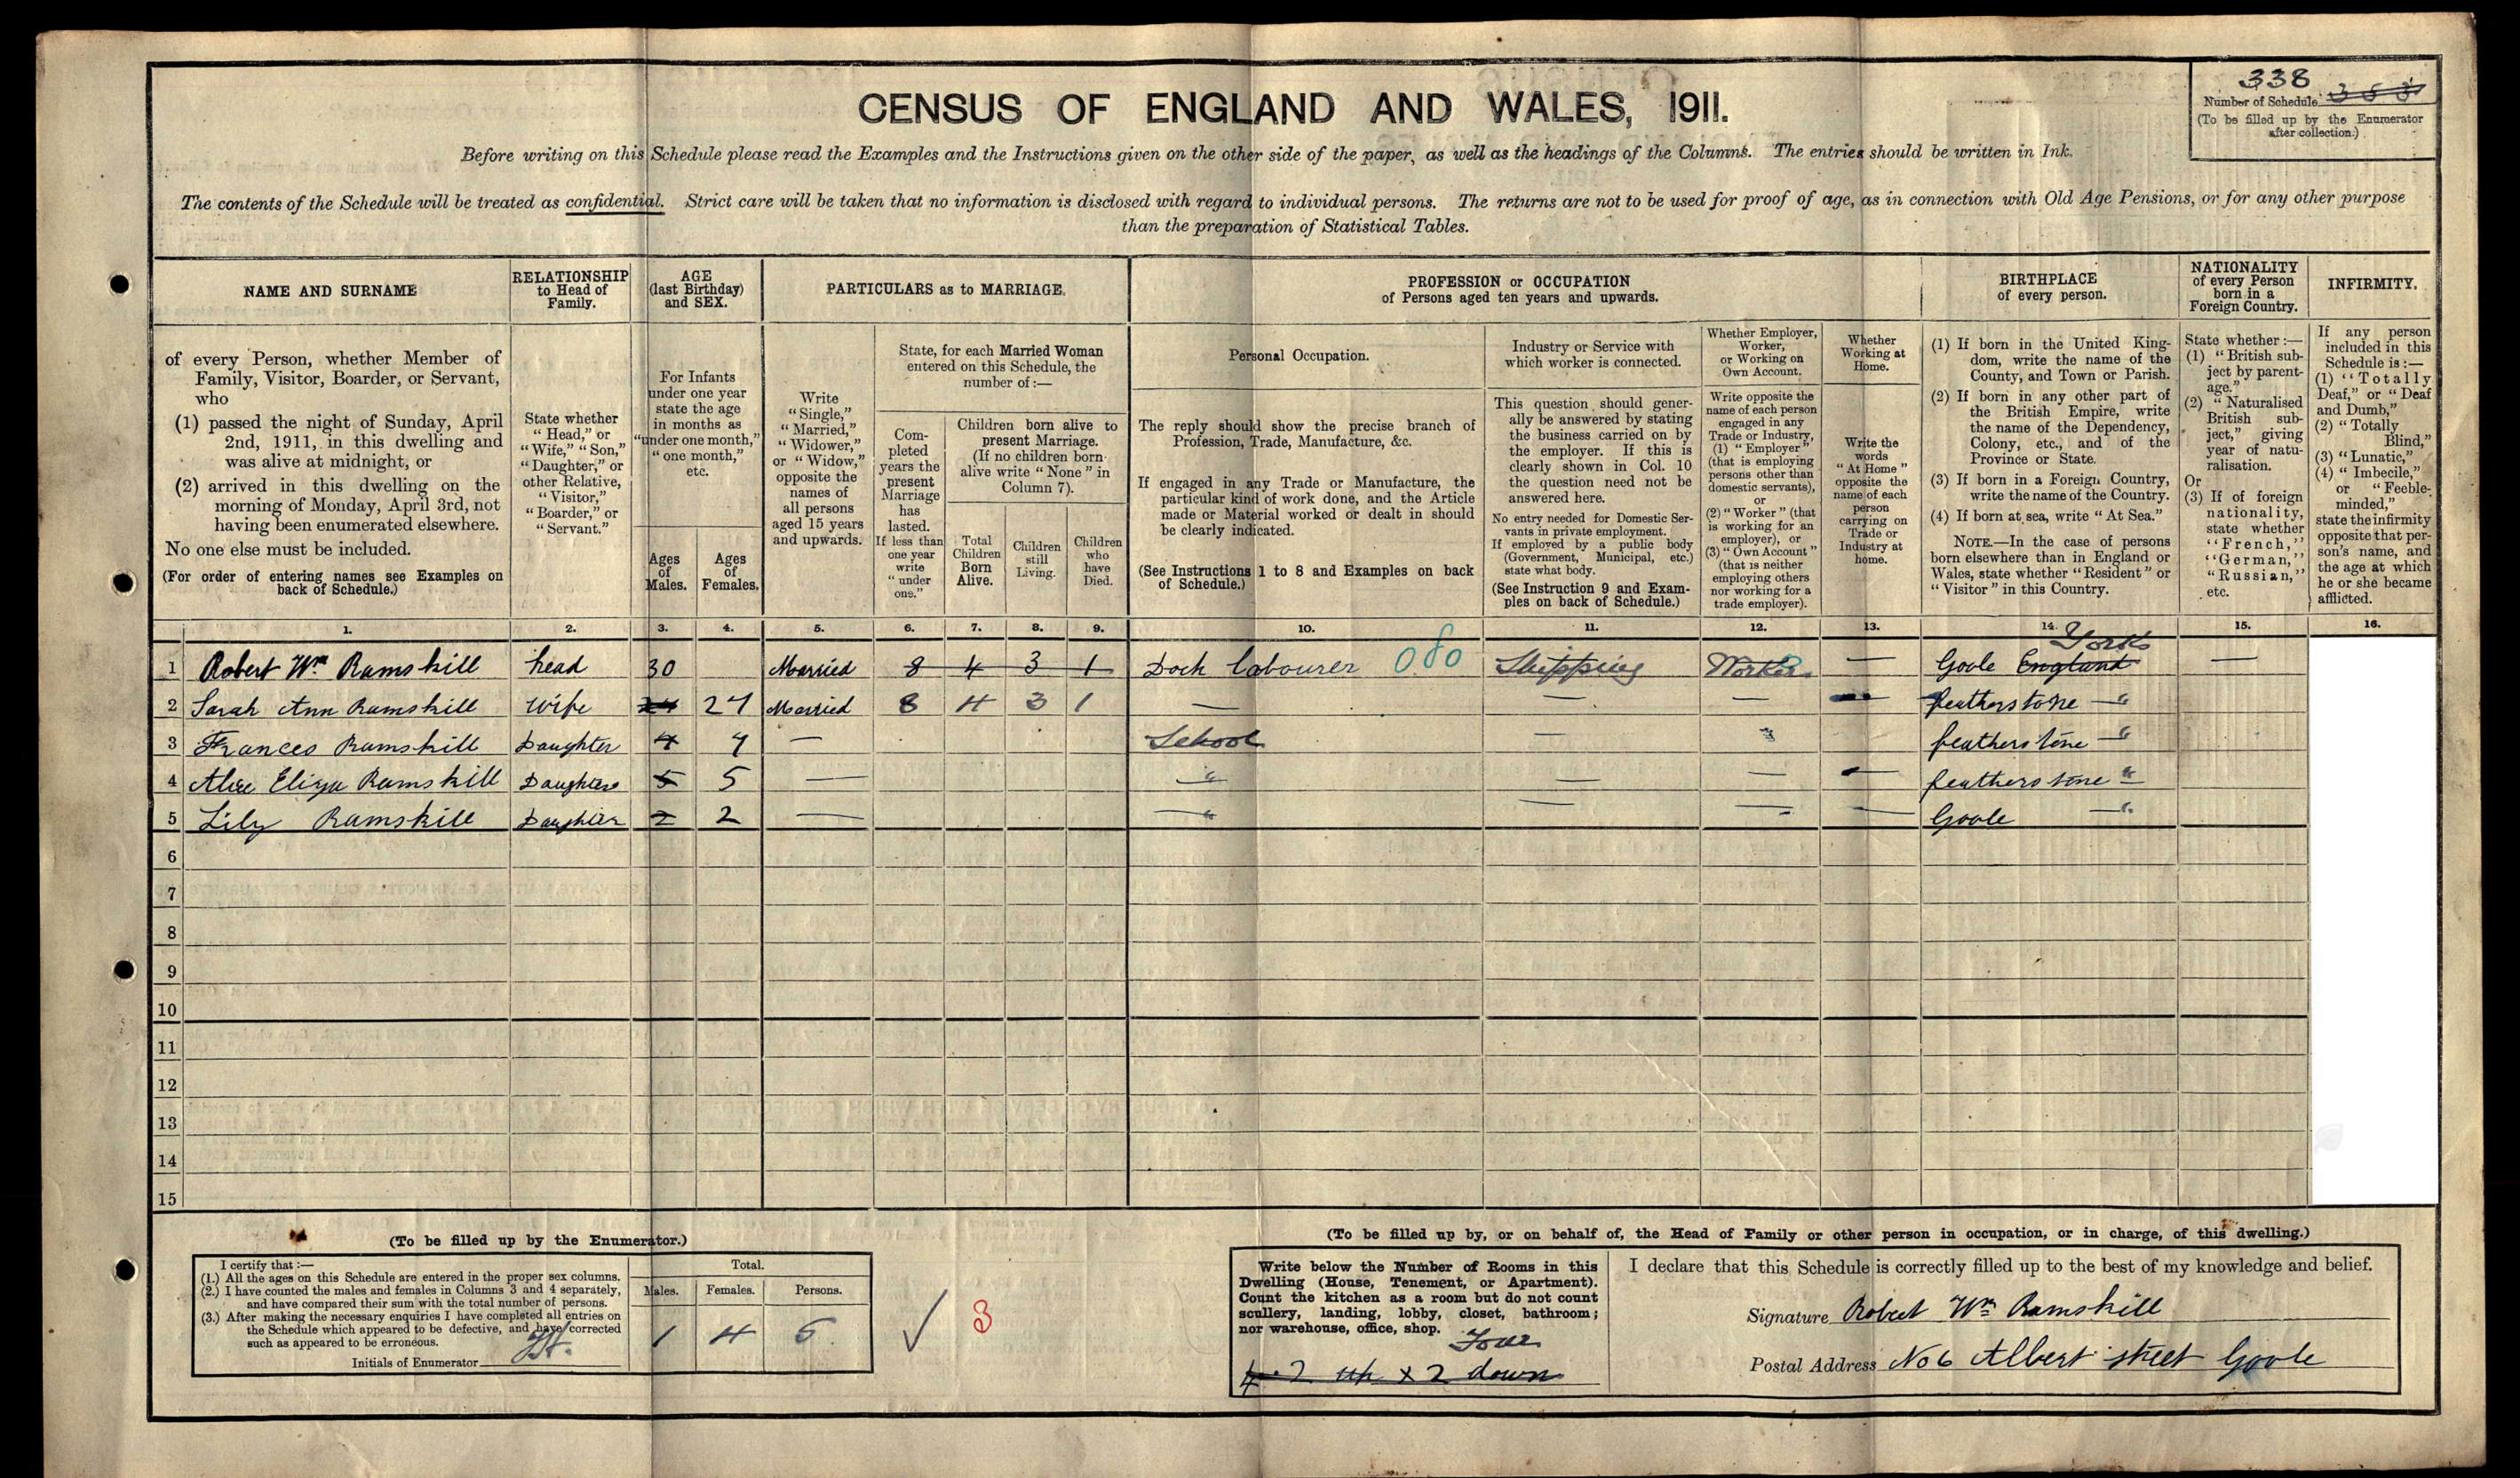 338
Number of Schedule 353
(To be filled up by the Enumerator
after collection.)
CENSUS OF ENGLAND AND WALES, 1911.
Before writing on this Schedule please read the Examples and the Instructions given on the other side of the paper, as well as the headings of the Columns. The entries should be written in Ink.
The contents of the Schedule will be treated as confidential. Strict care will be taken that no information is disclosed with regard to individual persons. The returns are not to be used for proof of age, as in connection with Old Age Pensions, or for any other purpose
than the preparation of Statistical Tables.
NAME AND SURNAME
of every Person, whether Member of
Family, Visitor, Boarder, or Servant,
who
(1) passed the night of Sunday, April
2nd, 1911, in this dwelling and
was alive at midnight, or
(2) arrived in this dwelling on the
morning of Monday, April 3rd, not
having been enumerated elsewhere.
No one else must be included.
(For order of entering names see Examples on
back of Schedule.)
RELATIONSHIP
to Head of
Family.
State whether
"Head," or
"Wife," "Son,"
"Daughter," or
other Relative,
"Visitor,"
"Boarder," or
"Servant."
AGE
(last Birthday)
and SEX.
For Infants
under one year
state the age
in months as
"under one month,"
"one month,"
etc.
Ages
of
Males.
Ages
of
Females.
PARTICULARS as to MARRIAGE.
Write
"Single,"
"Married,"
"Widower,"
or "Widow,"
opposite the
names of
all persons
aged 15 years
and upwards.
State, for each Married Woman
entered on this Schedule, the
number of:—
Com-
pleted
years the
present
Marriage
has
lasted.
If less than
one year
write
"under
one."
Children born alive to
present Marriage.
(If no children born
alive write "None" in
Column 7).
Total
Children
Born
Alive.
Children
still
Living.
Children
who
have
Died.
PROFESSION or OCCUPATION
of Persons aged ten years and upwards.
Personal Occupation.
The reply should show the precise branch of
Profession, Trade, Manufacture, &c.
If engaged in any Trade or Manufacture, the
particular kind of work done, and the Article
made or Material worked or dealt in should
be clearly indicated.
(See Instructions 1 to 8 and Examples on back
of Schedule.)
Industry or Service with
which worker is connected.
This question should gener-
ally be answered by stating
the business carried on by
the employer. If this is
clearly shown in Col. 10
the question need not be
answered here.
No entry needed for Domestic Ser-
vants in private employment.
If employed by a public body
(Government, Municipal, etc.)
state what body.
(See Instruction 9 and Exam-
ples on back of Schedule.)
Whether Employer,
Worker,
or Working on
Own Account.
Write opposite the
name of each person
engaged in any
Trade or Industry,
(1) "Employer"
(that is employing
persons other than
domestic servants),
or
(2) "Worker" (that
is working for an
employer), or
(3) "Own Account"
(that is neither
employing others
nor working for a
trade employer).
Whether
Working at
Home.
Write the
words
"At Home"
opposite the
name of each
person
carrying on
Trade or
Industry at
home.
BIRTHPLACE
of every person.
(1) If born in the United King-
dom, write the name of the
County, and Town or Parish.
(2) If born in any other part of
the British Empire, write
the name of the Dependency,
Colony, etc., and of the
Province or State.
(3) If born in a Foreign Country,
write the name of the Country.
(4) If born at sea, write "At Sea."
NOTE.—In the case of persons
born elsewhere than in England or
Wales, state whether "Resident" or
"Visitor" in this Country.
NATIONALITY
of every Person
born in a
Foreign Country.
State whether:—
(1) "British sub-
ject by parent-
age."
(2) "Naturalised
British sub-
ject," giving
year of natu-
ralisation.
Or
(3) If of foreign
nationality,
state whether
"French,"
"German,"
"Russian,"
etc.
INFIRMITY.
If any person
included in this
Schedule is:—
(1) "Totally
Deaf," or "Deaf
and Dumb,"
(2) "Totally
Blind,"
(3) "Lunatic,"
(4) "Imbecile,"
or "Feeble-
minded,"
state the infirmity
opposite that per-
son's name, and
the age at which
he or she became
afflicted.
1. 2. 3. 4. 5. 6. 7. 8. 9. 10. 11. 12. 13. 14. 15. 16.
Yorks
1 Robert Wm Ramskill head 30 Married 8 4 3 1 Dock labourer 080 Shipping Worker — Goole England —
2 Sarah Ann Ramskill Wife 27 Married 8 4 3 1 — — — — featherstone — "
3 Frances Ramskill Daughter 7 7 — School — featherstone — "
4 Alice Eliza Ramskill Daughter 5 5 — " — — — featherstone "
5 Lily Ramskill Daughter 2 2 — " — — — Goole — "
6
7
8
9
10
11
12
13
14
15
(To be filled up by the Enumerator.)
I certify that:—
(1.) All the ages on this Schedule are entered in the proper sex columns.
(2.) I have counted the males and females in Columns 3 and 4 separately,
and have compared their sum with the total number of persons.
(3.) After making the necessary enquiries I have completed all entries on
the Schedule which appeared to be defective, and have corrected
such as appeared to be erroneous.
Initials of Enumerator
Total.
Males. Females. Persons.
1 4 5
3
(To be filled up by, or on behalf of, the Head of Family or other person in occupation, or in charge, of this dwelling.)
Write below the Number of Rooms in this
Dwelling (House, Tenement, or Apartment).
Count the kitchen as a room but do not count
scullery, landing, lobby, closet, bathroom;
nor warehouse, office, shop.
Four
4 2 up x 2 down
I declare that this Schedule is correctly filled up to the best of my knowledge and belief.
Signature Robert Wm Ramskill
Postal Address No 6 Albert street Goole